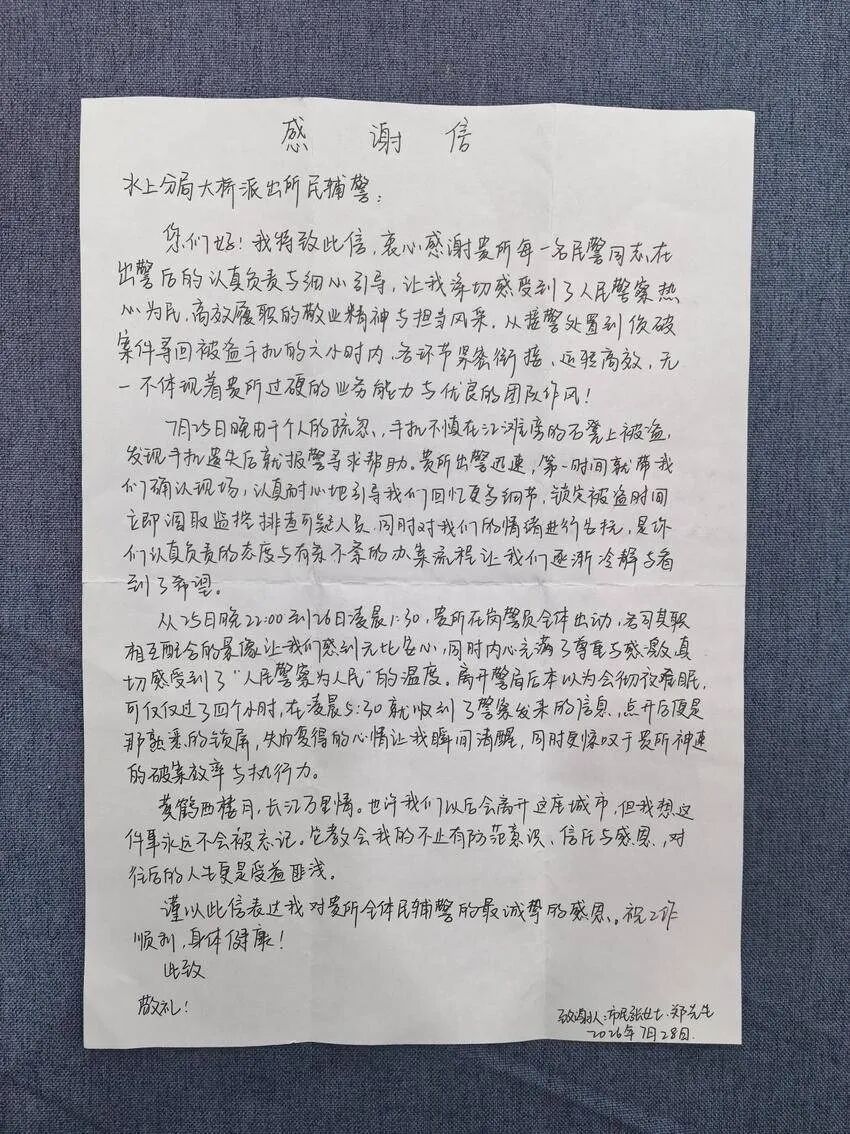 感谢信
水上分局大桥派出所民辅警：
您们好！我特致此信，衷心感谢贵所每一名民警同志在
出警后的认真负责与细心引导，让我深切感受到了人民警察热
心为民、高效履职的敬业精神与担当风采。从接警处置到侦破
案件寻回被盗手机的六小时内，各环节紧密衔接、运转高效，无
一不体现着贵所过硬的业务能力与优良的团队作风！
7月25日晚由于个人的疏忽，手机不慎在江滩旁的石凳上被盗，
发现手机遗失后就报警寻求帮助。贵所出警迅速，第一时间就带我
们确认现场，认真耐心地引导我们回忆更多细节，锁定被盗时间
立即调取监控排查可疑人员，同时对我们的情绪进行安抚，是你
们认真负责的态度与有条不紊的办案流程让我们逐渐冷静与看
到了希望。
从25日晚22:00到26日凌晨1:30，贵所在岗警员全体出动，各司其职
相互配合的景像让我们感到无比安心，同时内心充满了尊重与感激，真
切感受到了“人民警察为人民”的温度。离开警局后本以为会彻夜难眠，
可仅仅过了四个小时，在凌晨5:30就收到了警察发来的信息，点开后便是
那熟悉的锁屏，失而复得的心情让我瞬间清醒，同时更惊叹于贵所神速
的破案效率与执行力。
黄鹤西楼月，长江万里情。也许我们以后会离开这座城市，但我想这
件事永远不会被忘记。它教会我的不止有防范意识、信任与感恩，对
往后的人生更是受益匪浅。
谨以此信表达我对贵所全体民辅警的最诚挚的感恩。祝工作
顺利，身体健康！
此致
敬礼！
致谢人：市民张女士、郑先生
2026年7月28日.